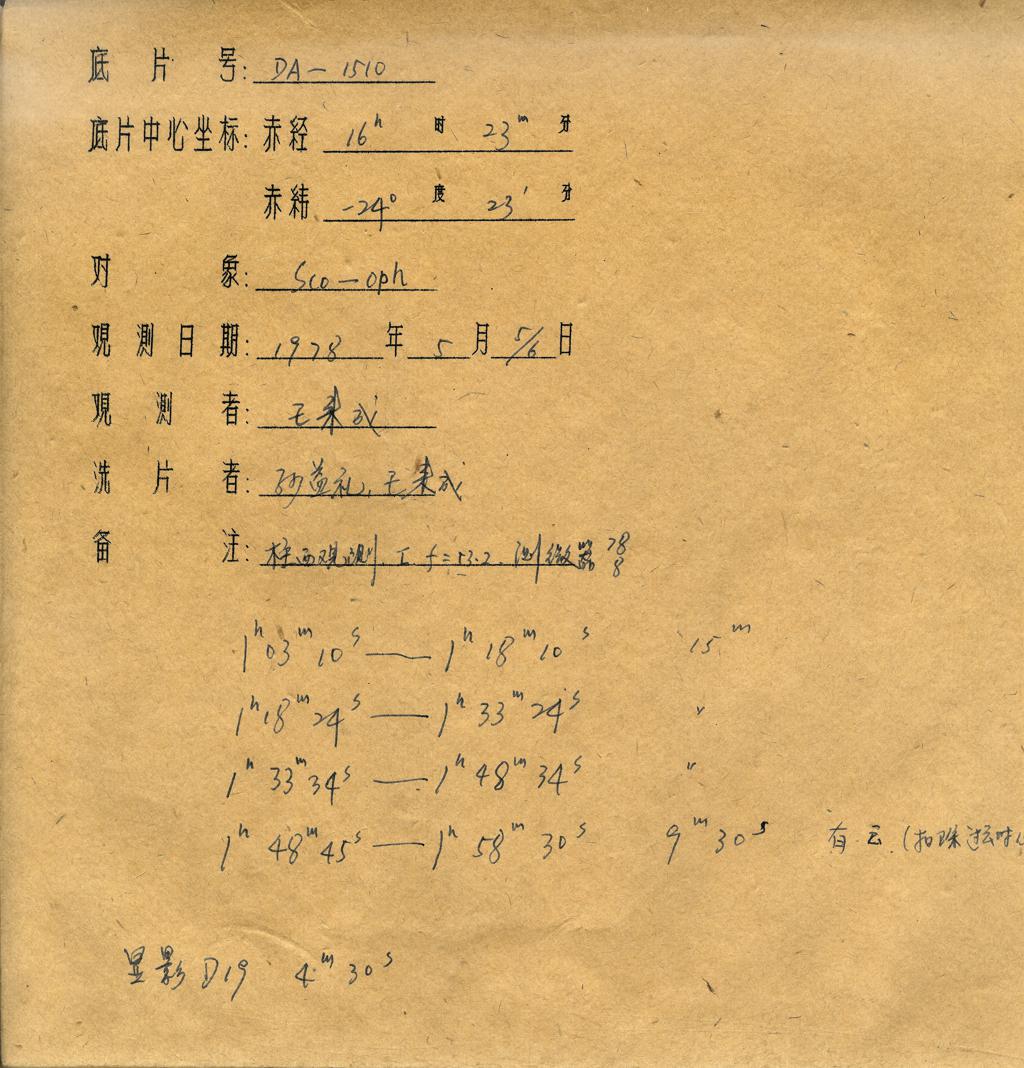 底片号: DA-1510
底片中心坐标: 赤经 16ʰ 时 23ᵐ 分
赤纬 -24° 度 23′ 分
对象: Sco-oph
观测日期: 1978 年 5 月 5/6 日
观测者: 王来成
洗片者: 益礼、王来成
备注: 西观测. f=53.2. 测微器 78 8
1ʰ03ᵐ10ˢ — 1ʰ18ᵐ10ˢ 15ᵐ
1ʰ18ᵐ24ˢ — 1ʰ33ᵐ24ˢ 〃
1ʰ33ᵐ34ˢ — 1ʰ48ᵐ34ˢ 〃
1ʰ48ᵐ45ˢ — 1ʰ58ᵐ30ˢ 9ᵐ30ˢ 有云 (扣除
显影 D19 4ᵐ30ˢ